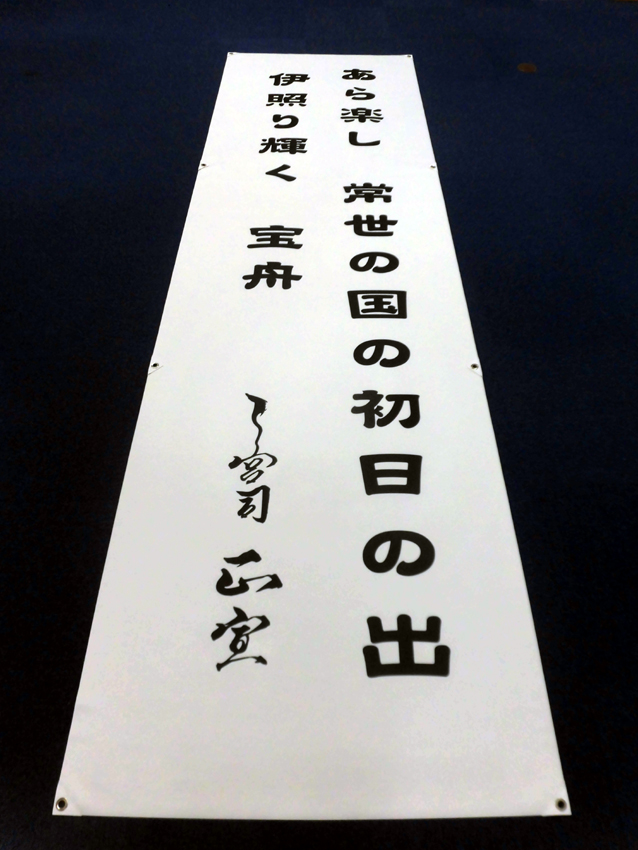 あら楽し　常世の国の初日の出
伊照り輝く　宝舟
宮司　正宣